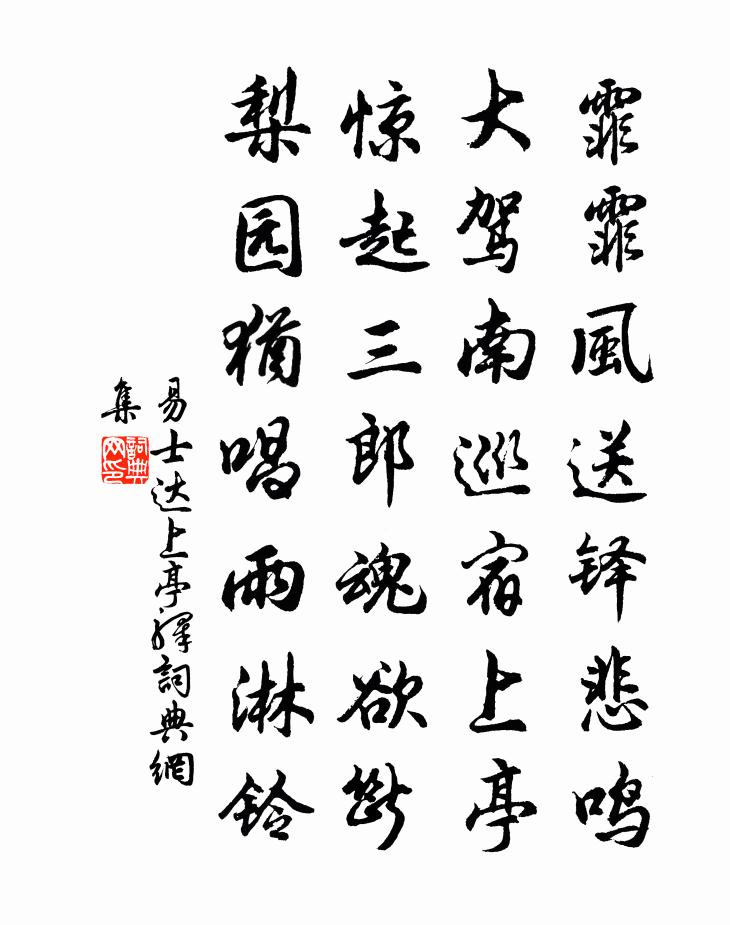 霏霏風送铎悲鸣
大驾南巡宿上亭
惊起三郎魂欲断
梨园犹唱雨淋铃
易士达上亭驛詞典網
集
詞典網印